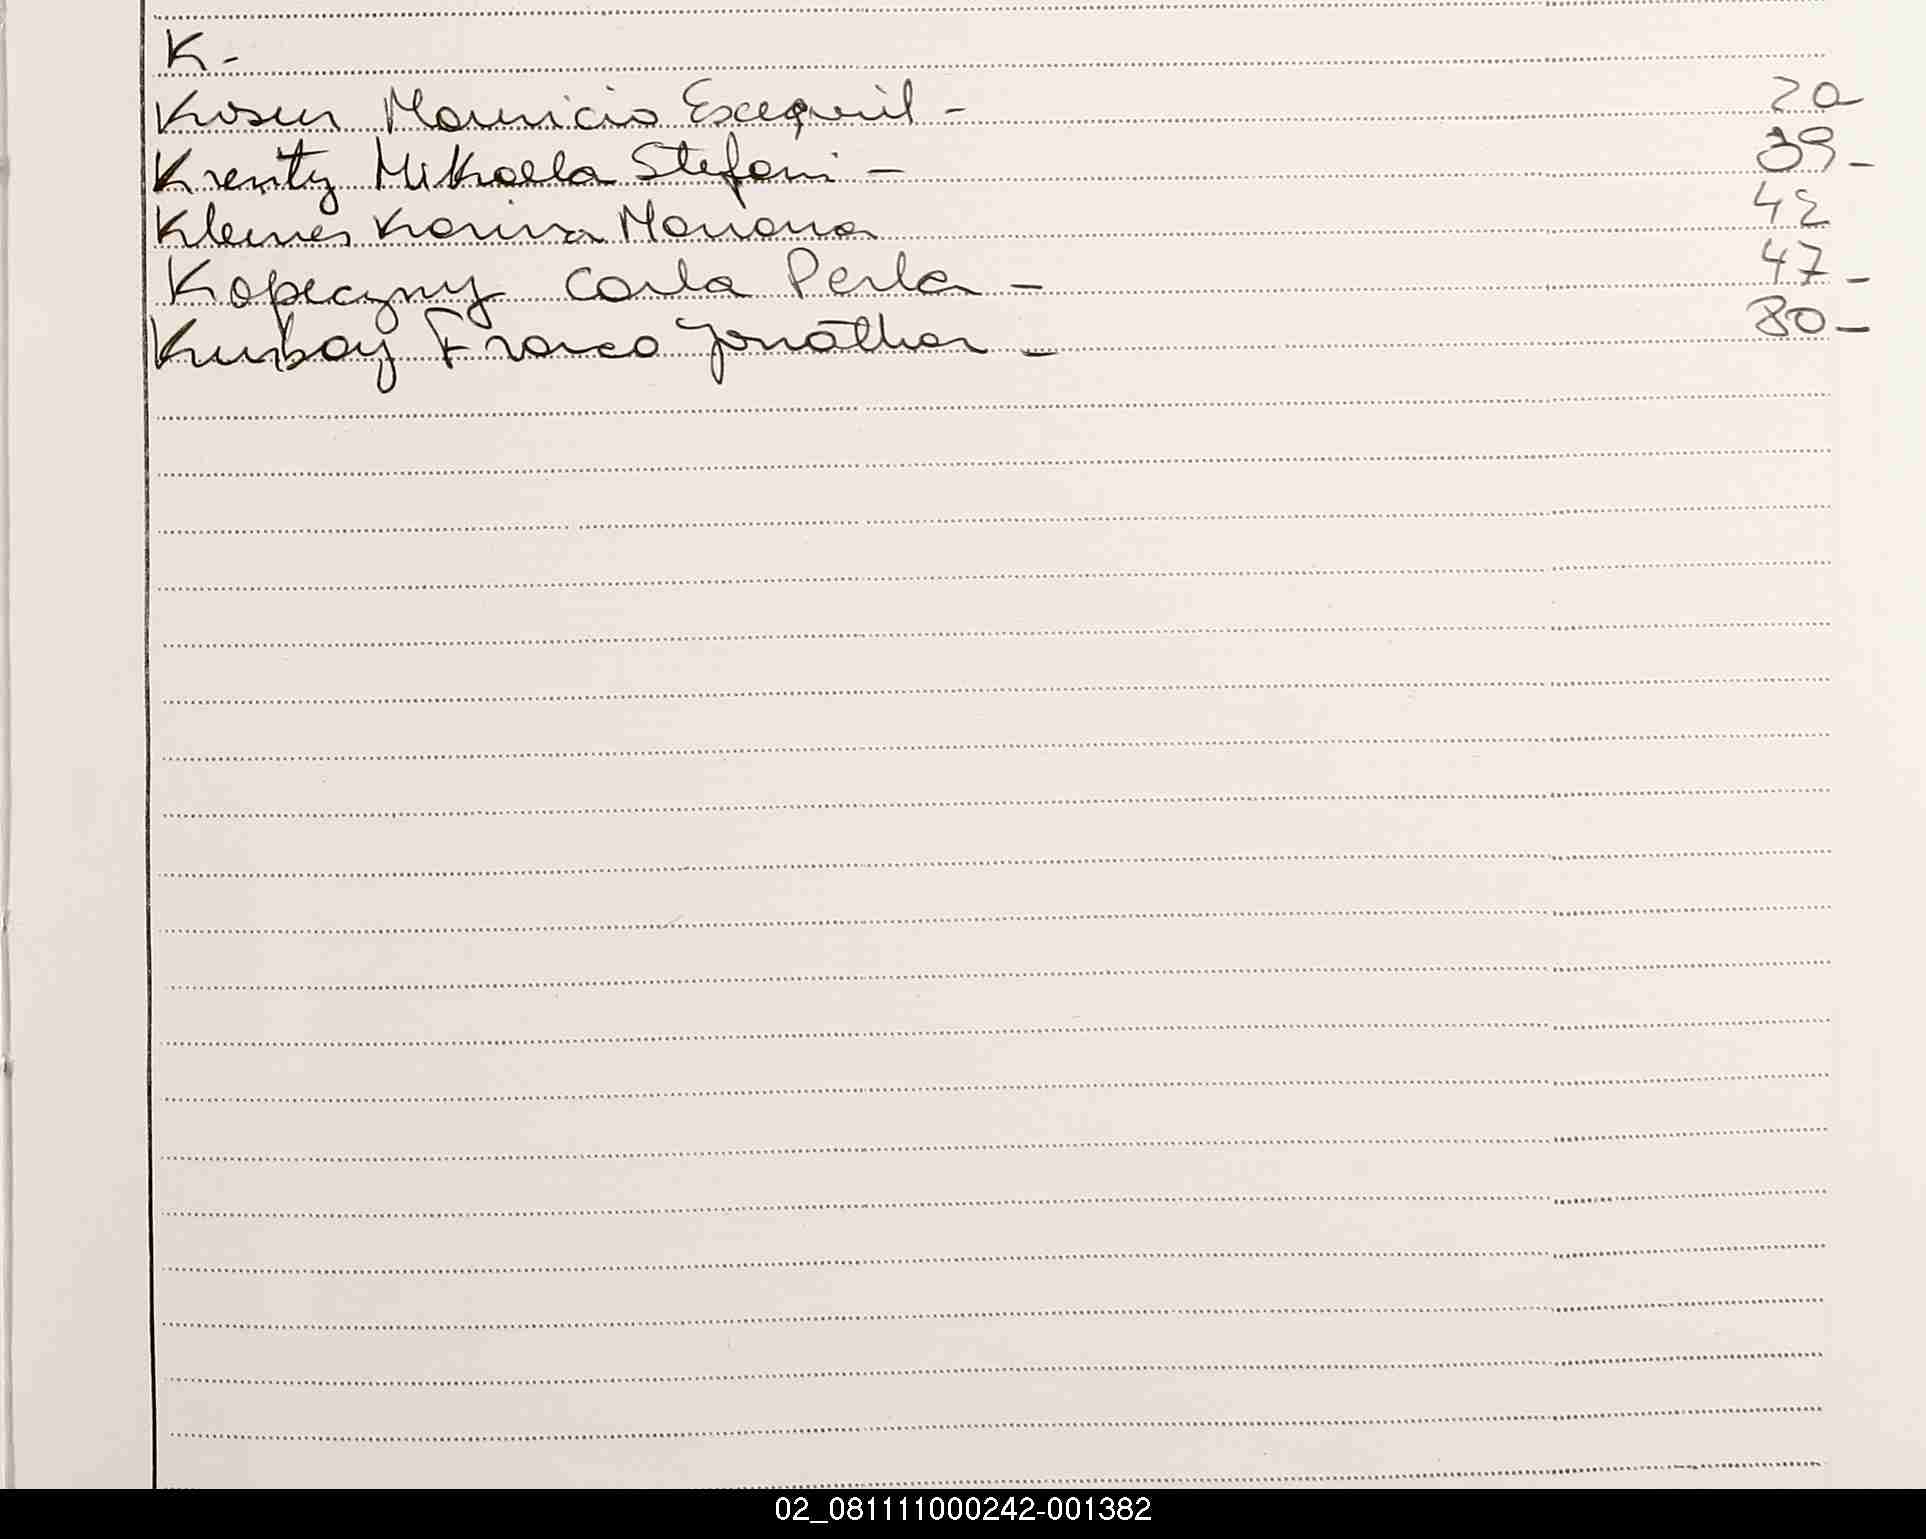 K-
Kosur Mauricio Esceqviel - 20
Krentz Mikaela Stefani - 39-
Kleines Karina Mariana 42
Kopeczny Carla Perla - 47-
Kurbay Franco Jonathan - 80-
02_081111000242-001382